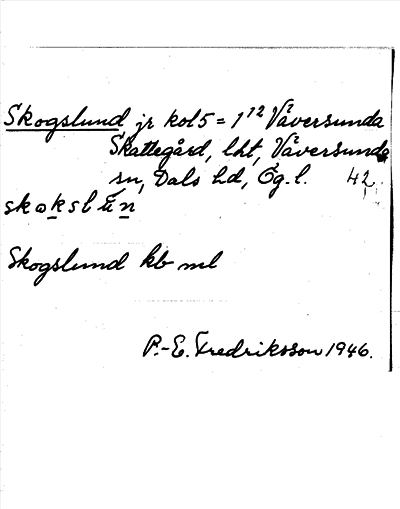 Skogslund jr kol5 = 1¹² Väversunda
Skattegård, lht, Väversunda
sn, Dals hd, Ög.l. 42
Skogslund kb ml
P.-E. Fredriksson 1946.